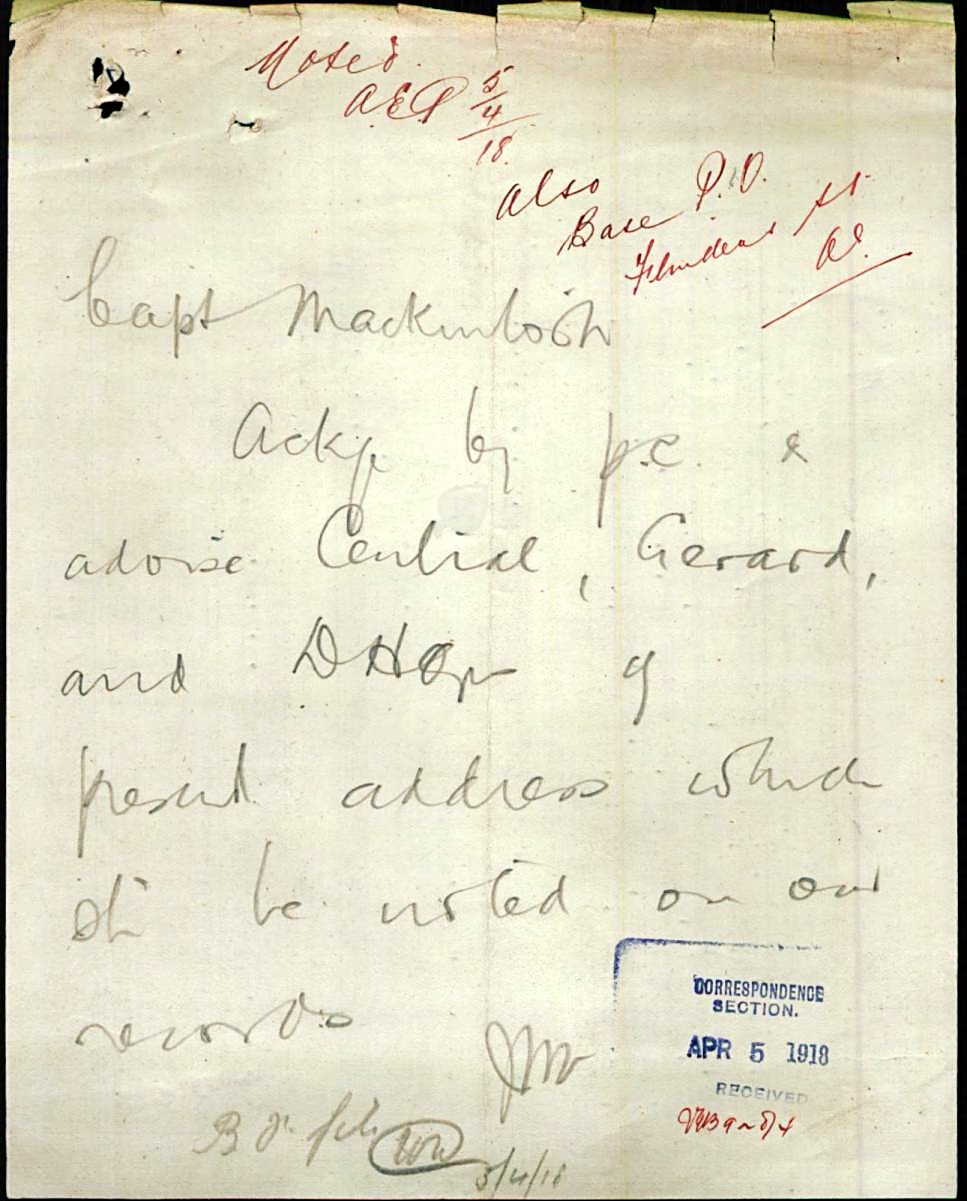 Noted.
A.E.P. 5/4/18.
Also
Base P.O.
Flinders St
Capt Mackintosh
Ackge by p.c. &
advise Central, Gerard,
and DHQ of
present address which
sh be noted on our
records
CORRESPONDENCE
SECTION.
APR 5 1918
RECEIVED
5/4/18